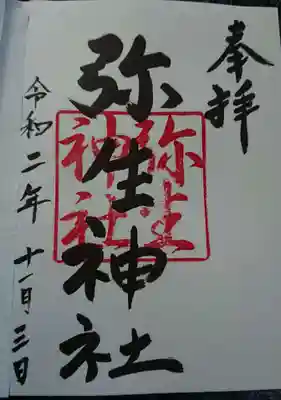 奉拝
弥生神社
弥生
神社
令和二年 十一月三日